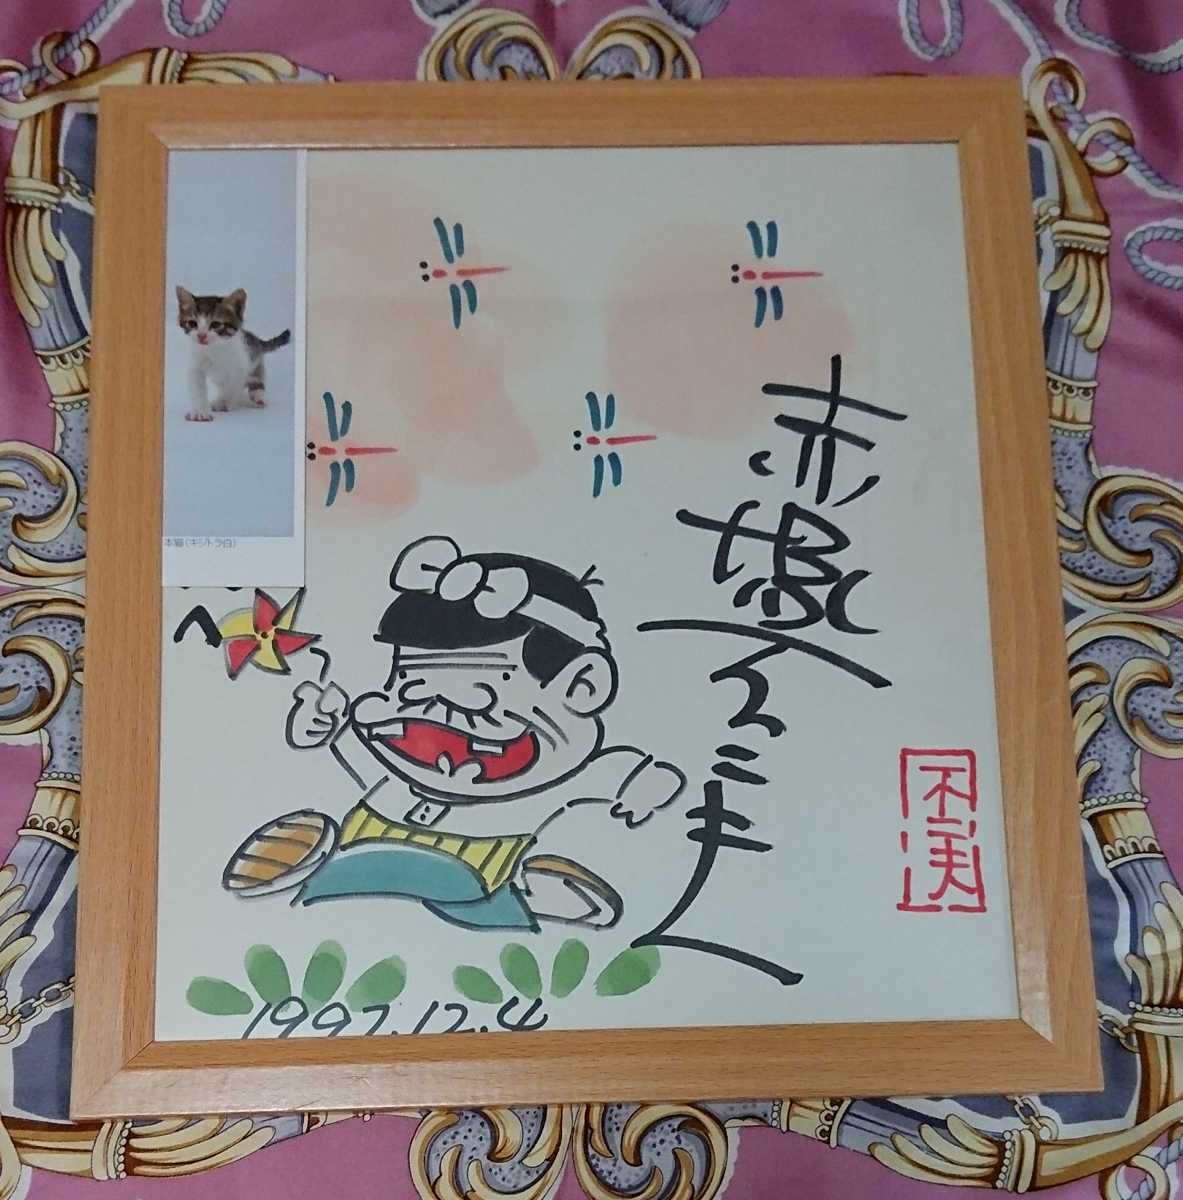 赤塚不二夫
不二夫
日本猫(キジトラ白)
へ
1997.12.4